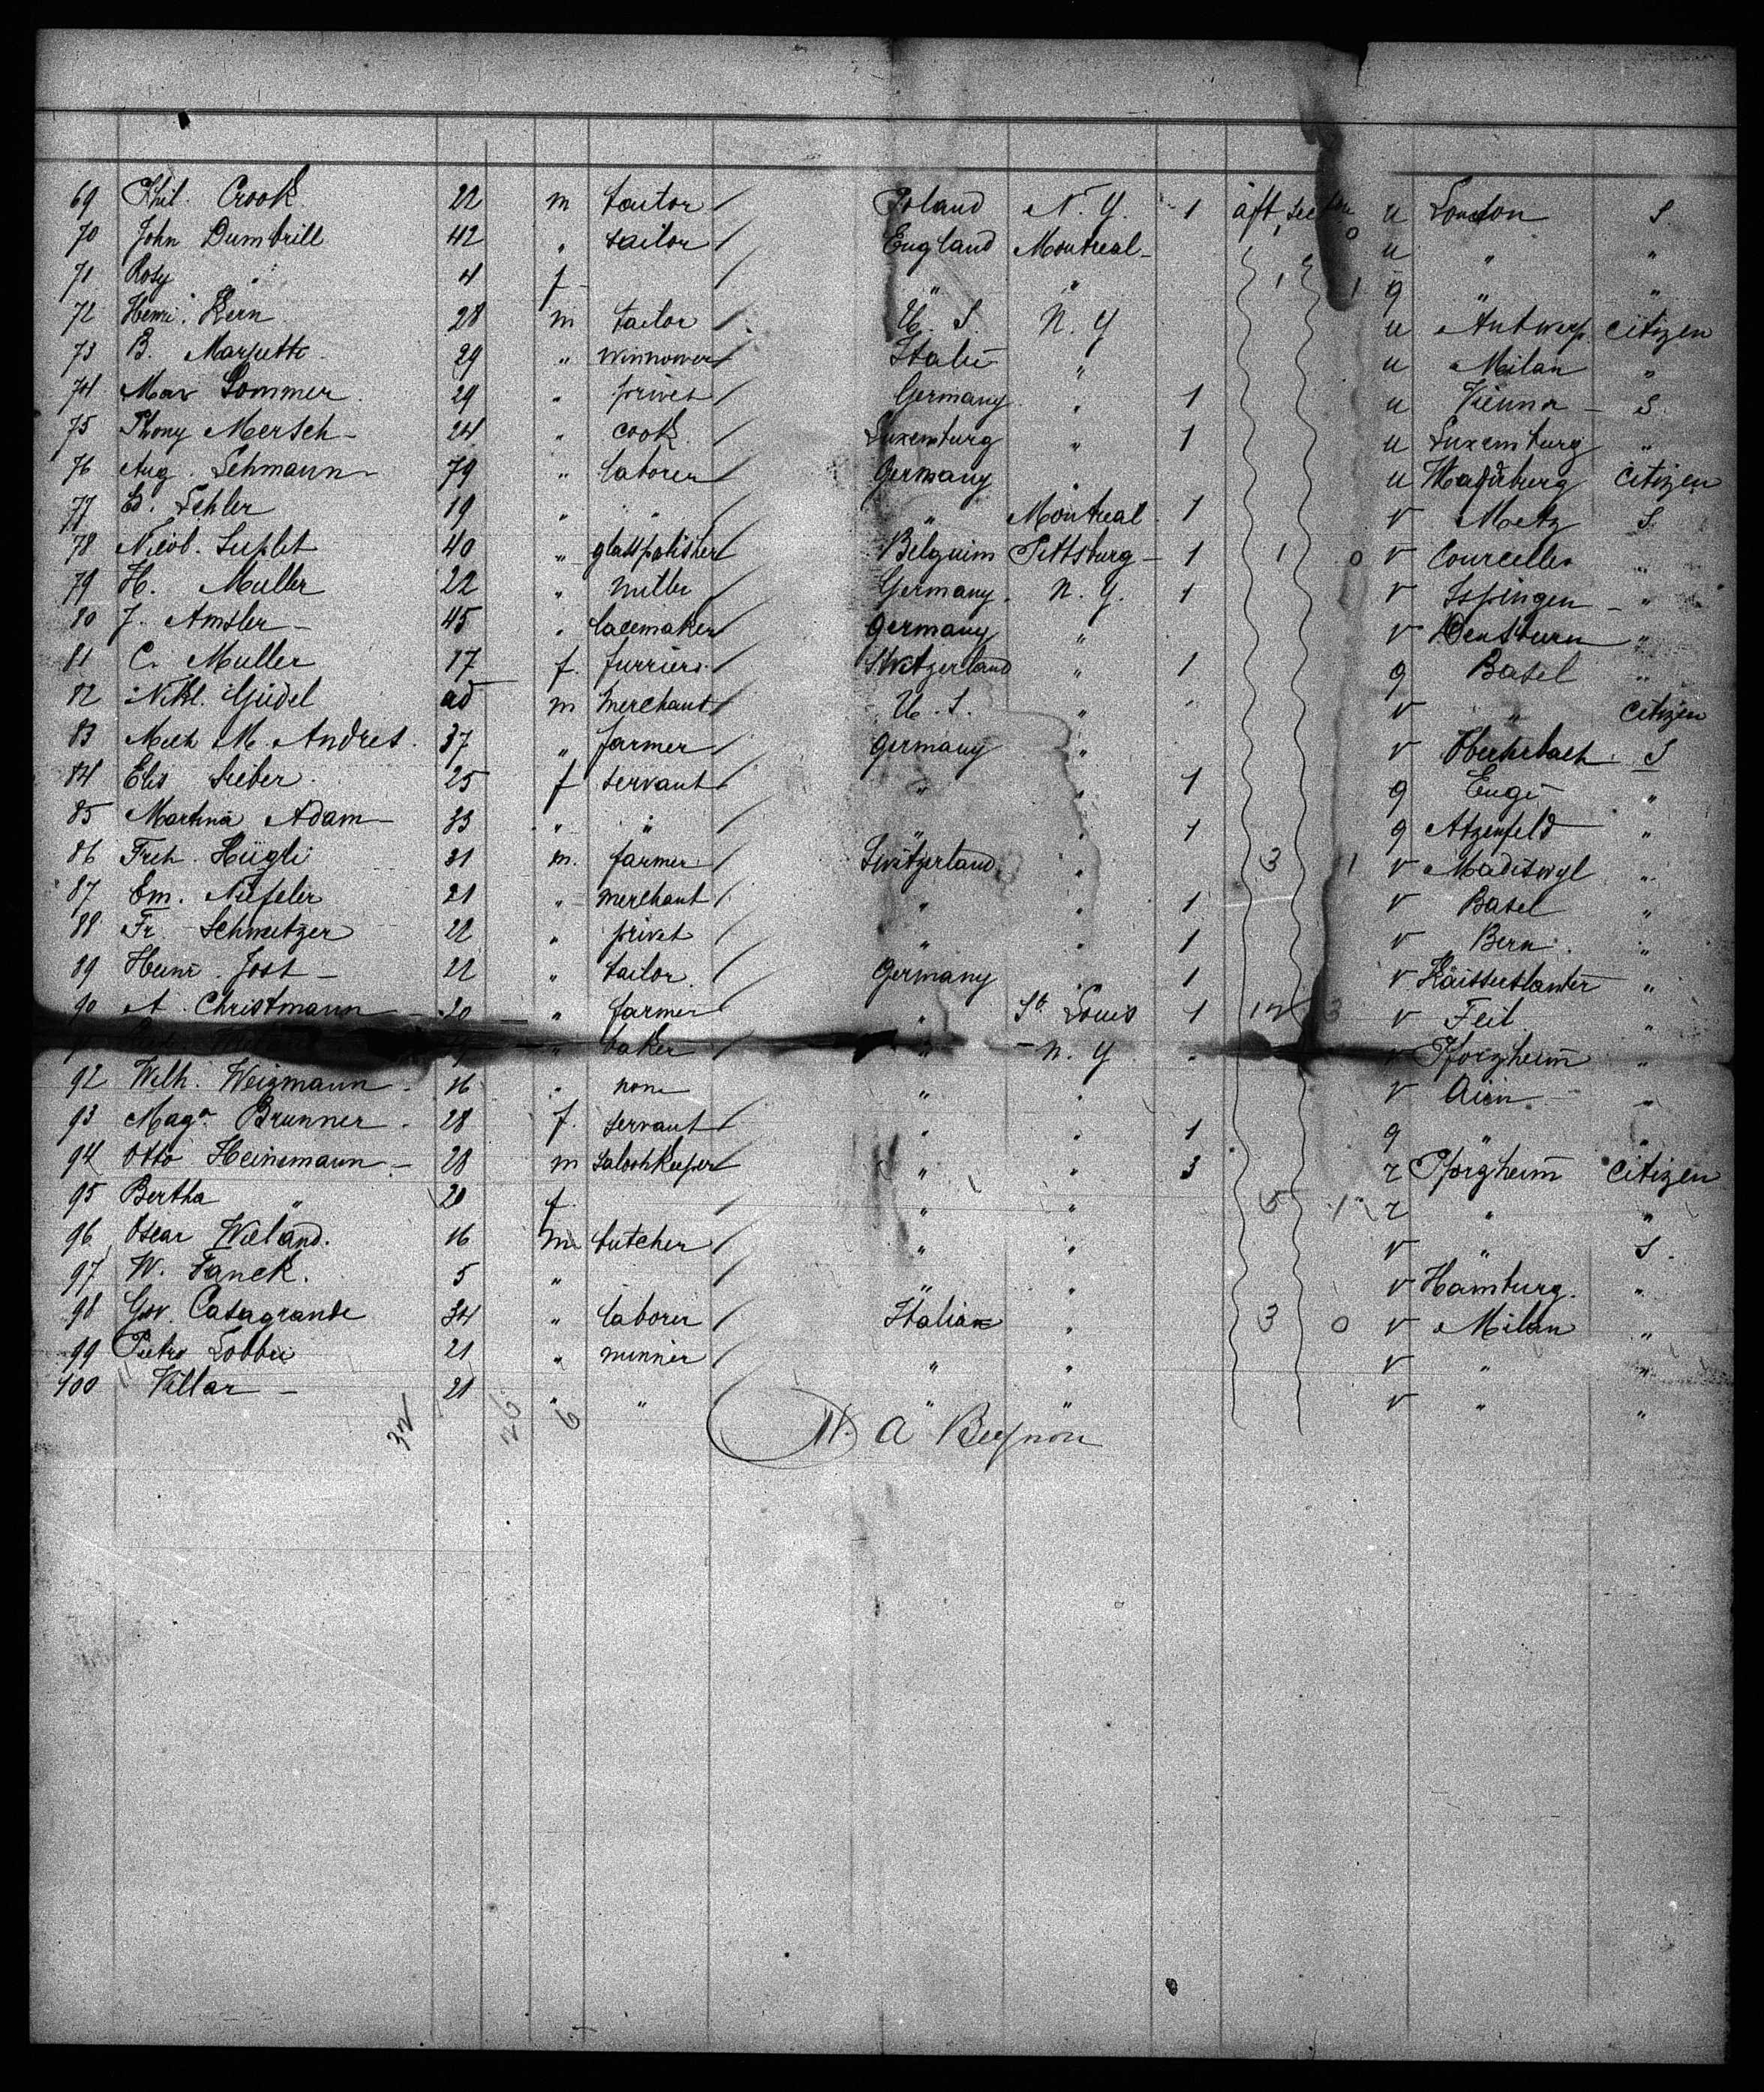 69 Phil. Crook 22 m tailor / Poland N. Y. 1 aft, section u London S
70 John Dumbrill 42 " sailor / England Montreal - 0 u " "
71 Rosy " 4 f / " " 1 1 g " "
72 Henri Kern 28 m tailor / U. S. N. Y u Antwerp citizen
73 B. 29 " winnower / Italie " u Milan "
74 Max Sommer 29 " privet / Germany " 1 u Vienna - S.
75 Thony Mersch - 24 " cook / Luxemburg " 1 u Luxemburg "
76 Aug. Lehmann 79 " laborer / Germany " u citizen
77 Ed. Lehler 19 " " / " Montreal 1 v Metz S.
78 40 " glasspolisher / Belguim Pittsburg - 1 1 0 v Courcelles "
79 H. Muller 22 " miller / Germany N. Y. 1 v Ispingen - "
80 J. Amsler - 45 " lacemaker / Germany " v "
81 C. Muller 17 f. furriers / Switzerland " 1 g Basel "
82 Nikl. Güdel ad m merchant / U. S. " v " citizen
83 Mich M. Andres 37 " farmer / Germany " v S
84 Elis Sieber 25 f servant / " " 1 g Engi "
85 Martina Adam - 33 " " / " " 1 g Atzenfeld "
86 Frch. Hügli 31 m. farmer / Switzerland " 3 1 v Madiswyl "
87 Em. Niefeler 21 " merchant / " " 1 v Basel "
88 Fr. Schweitzer 22 " privet / " " 1 v Bern "
89 Heinr. Jost - 22 " tailor / Germany " 1 v "
90 A. Christmann - 20 " farmer / " St. Louis 1 12 3 v Feil "
" baker / " - N. Y. " v Pforzheim "
92 Wilh. Weizmann - 16 " none " " v "
93 Maga. Brunner - 28 f. servant / " " 1 g " "
94 Otto Heinemann - 28 m saloonkeeper / " " 3 r Pforzheim citizen
95 Bertha " 20 f. / " " 5 1 r " "
96 Oscar Wieland. 16 m butcher / " " v " S.
97 W. Fanck. 5 " / " " v Hamburg. "
98 Gov. Casagrande 34 " laborer / Italian " 3 0 v Milan "
99 Pietro 21 " minner / " " v " "
100 Villar - 21 " " " " v " "
32 26 6 W. A Beynon